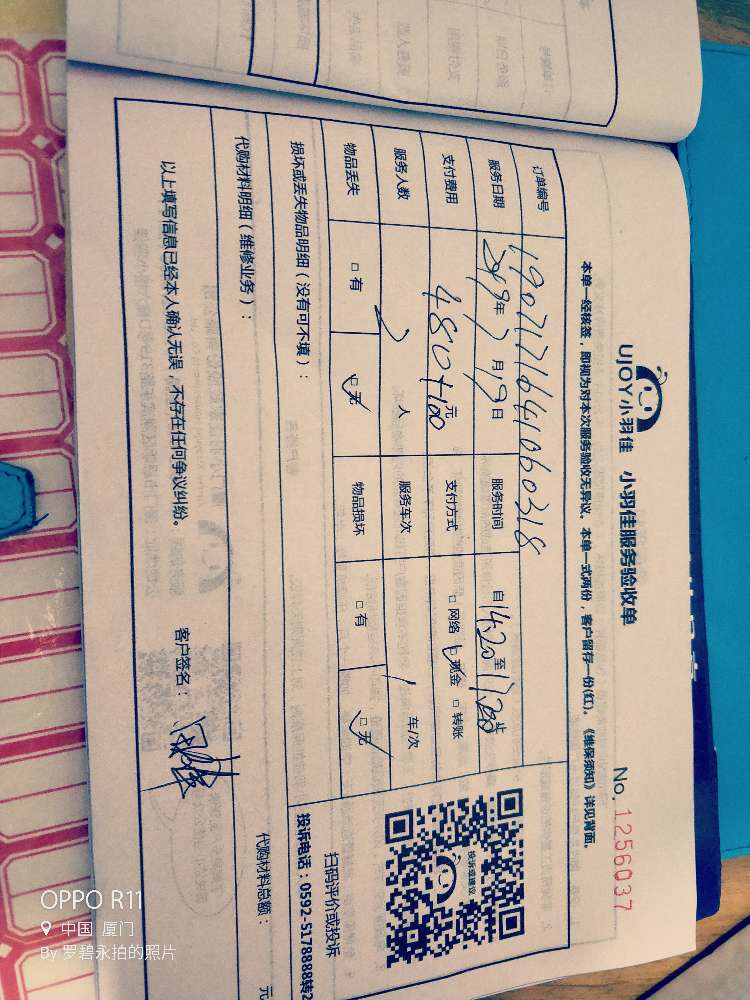 UJOY小羽佳 小羽佳服务验收单
No. 1256037
本单一经核签，即视为对本次服务验收无异议。本单一式两份，客户留存一份(红)。《维保须知》详见背面。
订单编号 190717164106031 8
服务日期 2019年7月19日 服务时间 自14:20至17:20止
支付费用 480+100元 支付方式 □网络 □现金 □转账
服务人数 2人 服务车次 1车/次
物品丢失 □有 □无 物品损坏 □有 □无
投诉或建议
扫码评价或投诉
投诉电话：0592-5178888转2
损坏或丢失物品明细（没有可不填）：
代购材料明细（维修业务）：
代购材料总额： 元
以上填写信息已经本人确认无误，不存在任何争议纠纷。
客户签名：
OPPO R11
中国 厦门
By 罗碧永拍的照片